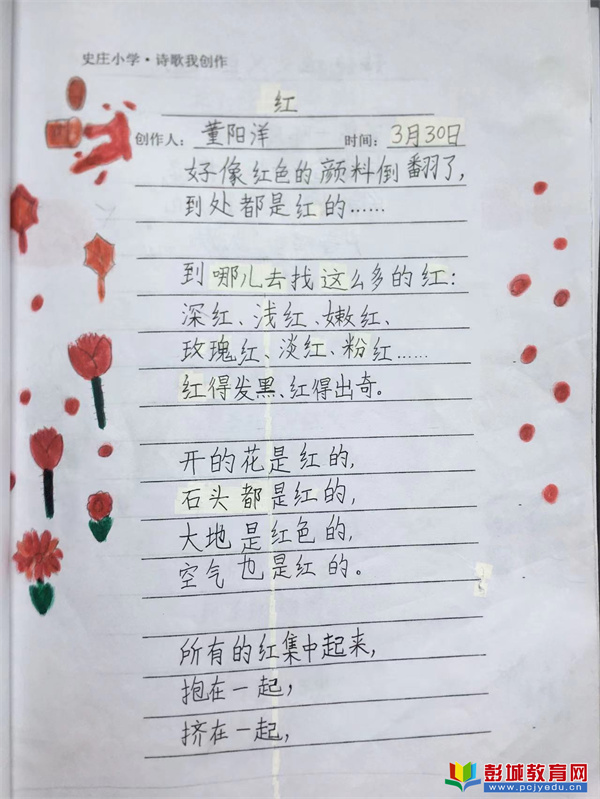 史庄小学·诗歌我创作
红
创作人：董阳洋 时间：3月30日
好像红色的颜料倒翻了，
到处都是红的……
到哪儿去找这么多的红：
深红、浅红、嫩红、
玫瑰红、淡红、粉红……
红得发黑、红得出奇。
开的花是红的，
石头都是红的，
大地是红色的，
空气也是红的。
所有的红集中起来，
抱在一起，
挤在一起，
彭城教育网
www.pcjyedu.cn